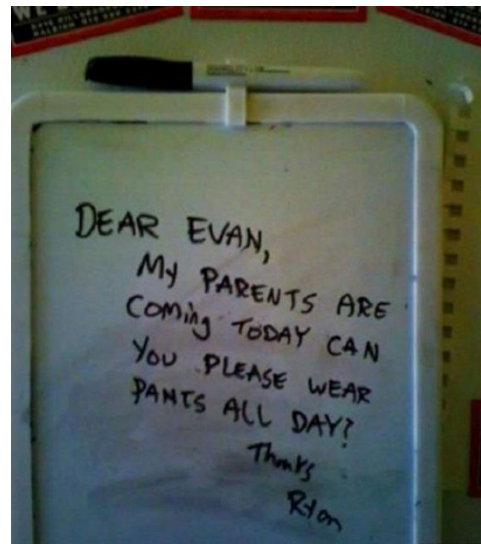 DEAR EVAN,
My PARENTS ARE
Coming TODAY CAN
You PLEASE WEAR
PANTS ALL DAY?
Thanks
Ryan